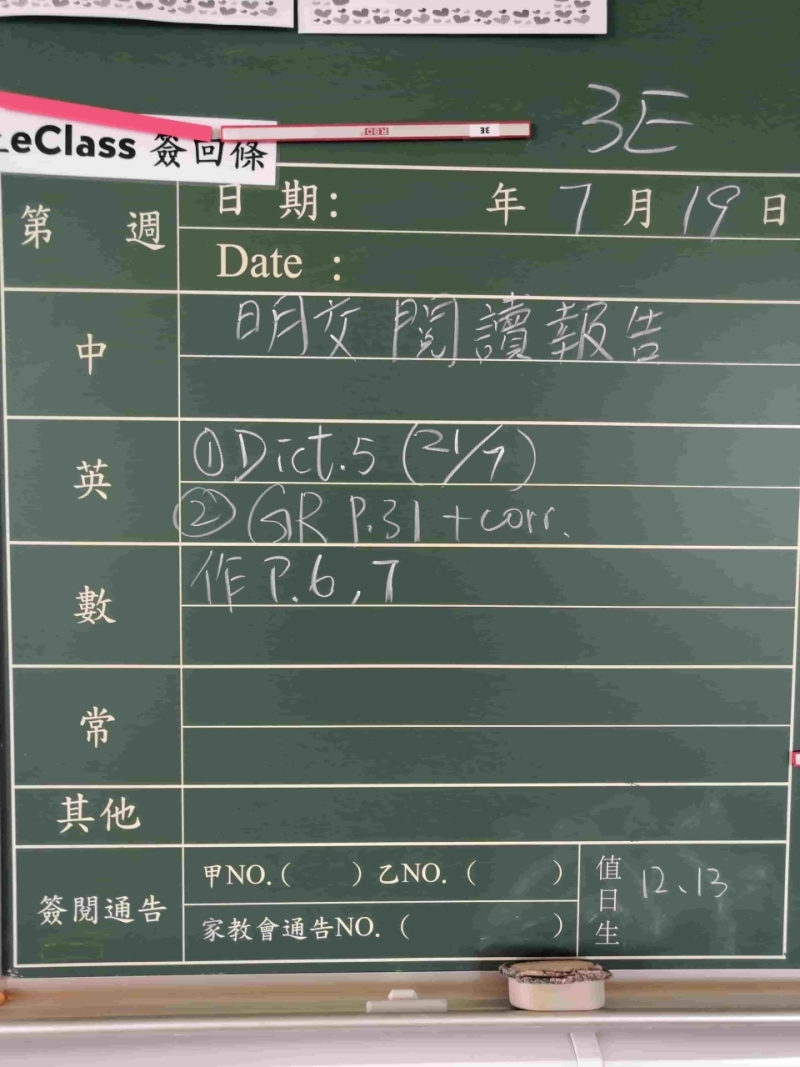 eClass 簽回條
3E
3E
第 週
日 期: 年 7 月 19 日
Date :
中
明交 閱讀報告
英
①Dict.5 (21/7)
②GR P.31 + corr.
數
作 P.6, 7
常
其他
簽閱通告
甲NO.( ) 乙NO. ( )
家教會通告NO. ( )
值日生
12、13